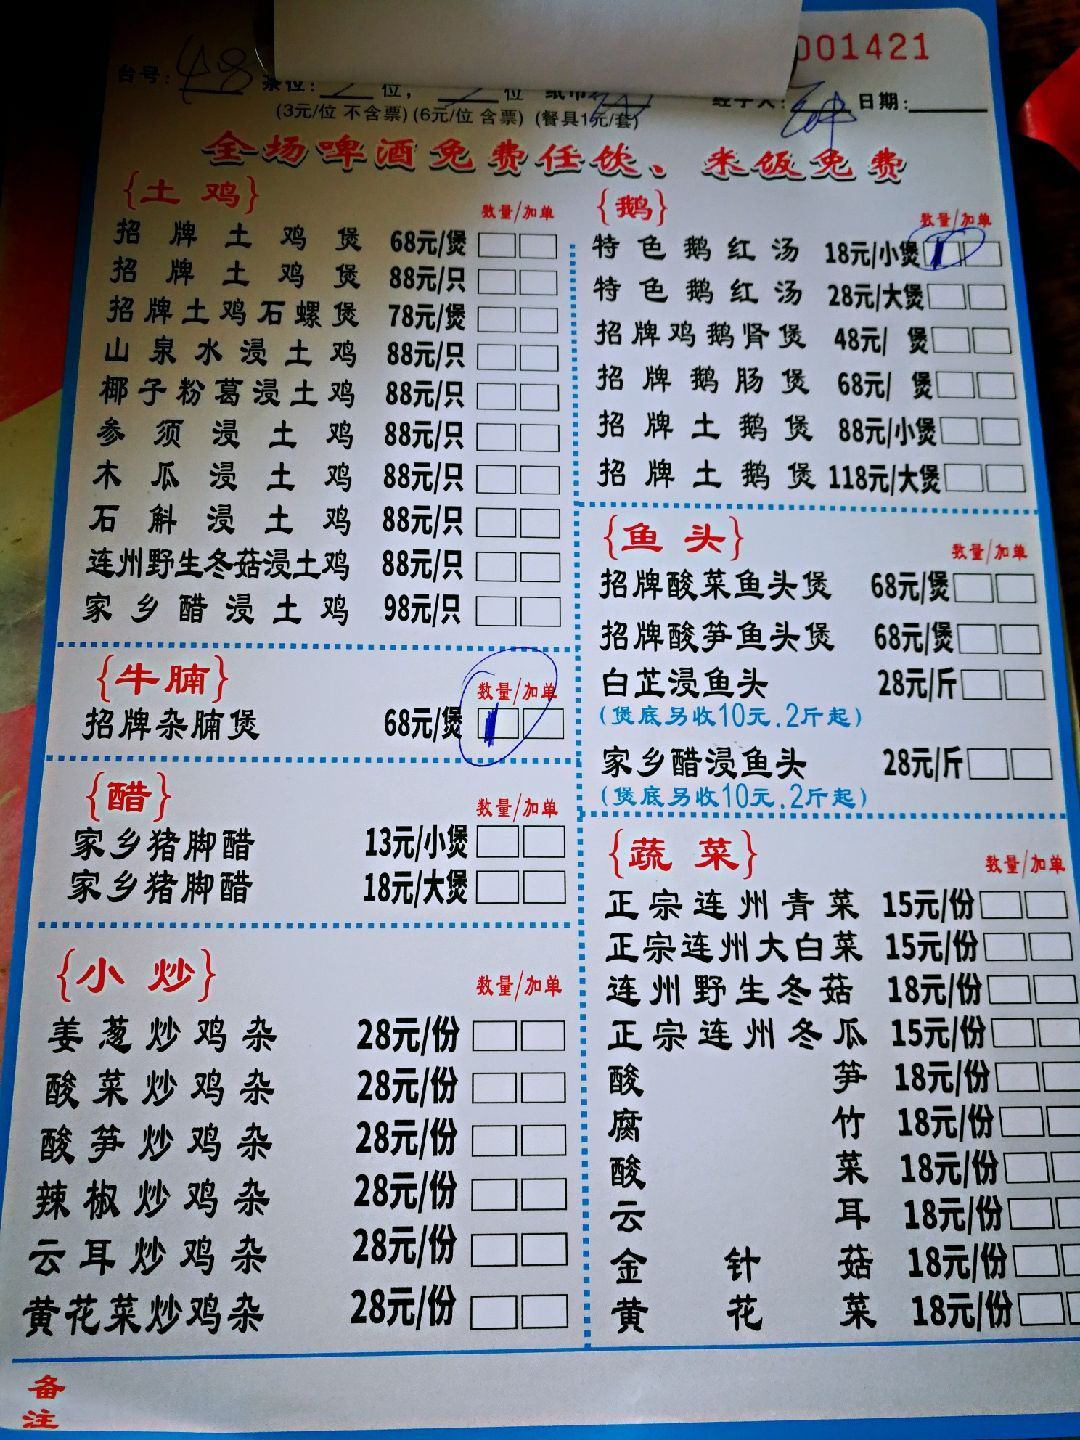 001421
台号: 48 茶位: 位, 位 纸巾 经手人: 日期:
(3元/位 不含票) (6元/位 含票) (餐具1元/套)
全场啤酒免费任饮、米饭免费
{土鸡} 数量/加单
招牌土鸡煲 68元/煲
招牌土鸡煲 88元/只
招牌土鸡石螺煲 78元/煲
山泉水浸土鸡 88元/只
椰子粉葛浸土鸡 88元/只
参须浸土鸡 88元/只
木瓜浸土鸡 88元/只
石斛浸土鸡 88元/只
连州野生冬菇浸土鸡 88元/只
家乡醋浸土鸡 98元/只
{牛腩} 数量/加单
招牌杂腩煲 68元/煲 1
{醋} 数量/加单
家乡猪脚醋 13元/小煲
家乡猪脚醋 18元/大煲
{小炒} 数量/加单
姜葱炒鸡杂 28元/份
酸菜炒鸡杂 28元/份
酸笋炒鸡杂 28元/份
辣椒炒鸡杂 28元/份
云耳炒鸡杂 28元/份
黄花菜炒鸡杂 28元/份
{鹅} 数量/加单
特色鹅红汤 18元/小煲 1
特色鹅红汤 28元/大煲
招牌鸡鹅肾煲 48元/ 煲
招牌鹅肠煲 68元/ 煲
招牌土鹅煲 88元/小煲
招牌土鹅煲 118元/大煲
{鱼头} 数量/加单
招牌酸菜鱼头煲 68元/煲
招牌酸笋鱼头煲 68元/煲
白芷浸鱼头 28元/斤
(煲底另收10元.2斤起)
家乡醋浸鱼头 28元/斤
(煲底另收10元.2斤起)
{蔬菜} 数量/加单
正宗连州青菜 15元/份
正宗连州大白菜 15元/份
连州野生冬菇 18元/份
正宗连州冬瓜 15元/份
酸笋 18元/份
腐竹 18元/份
酸菜 18元/份
云耳 18元/份
金针菇 18元/份
黄花菜 18元/份
备
注